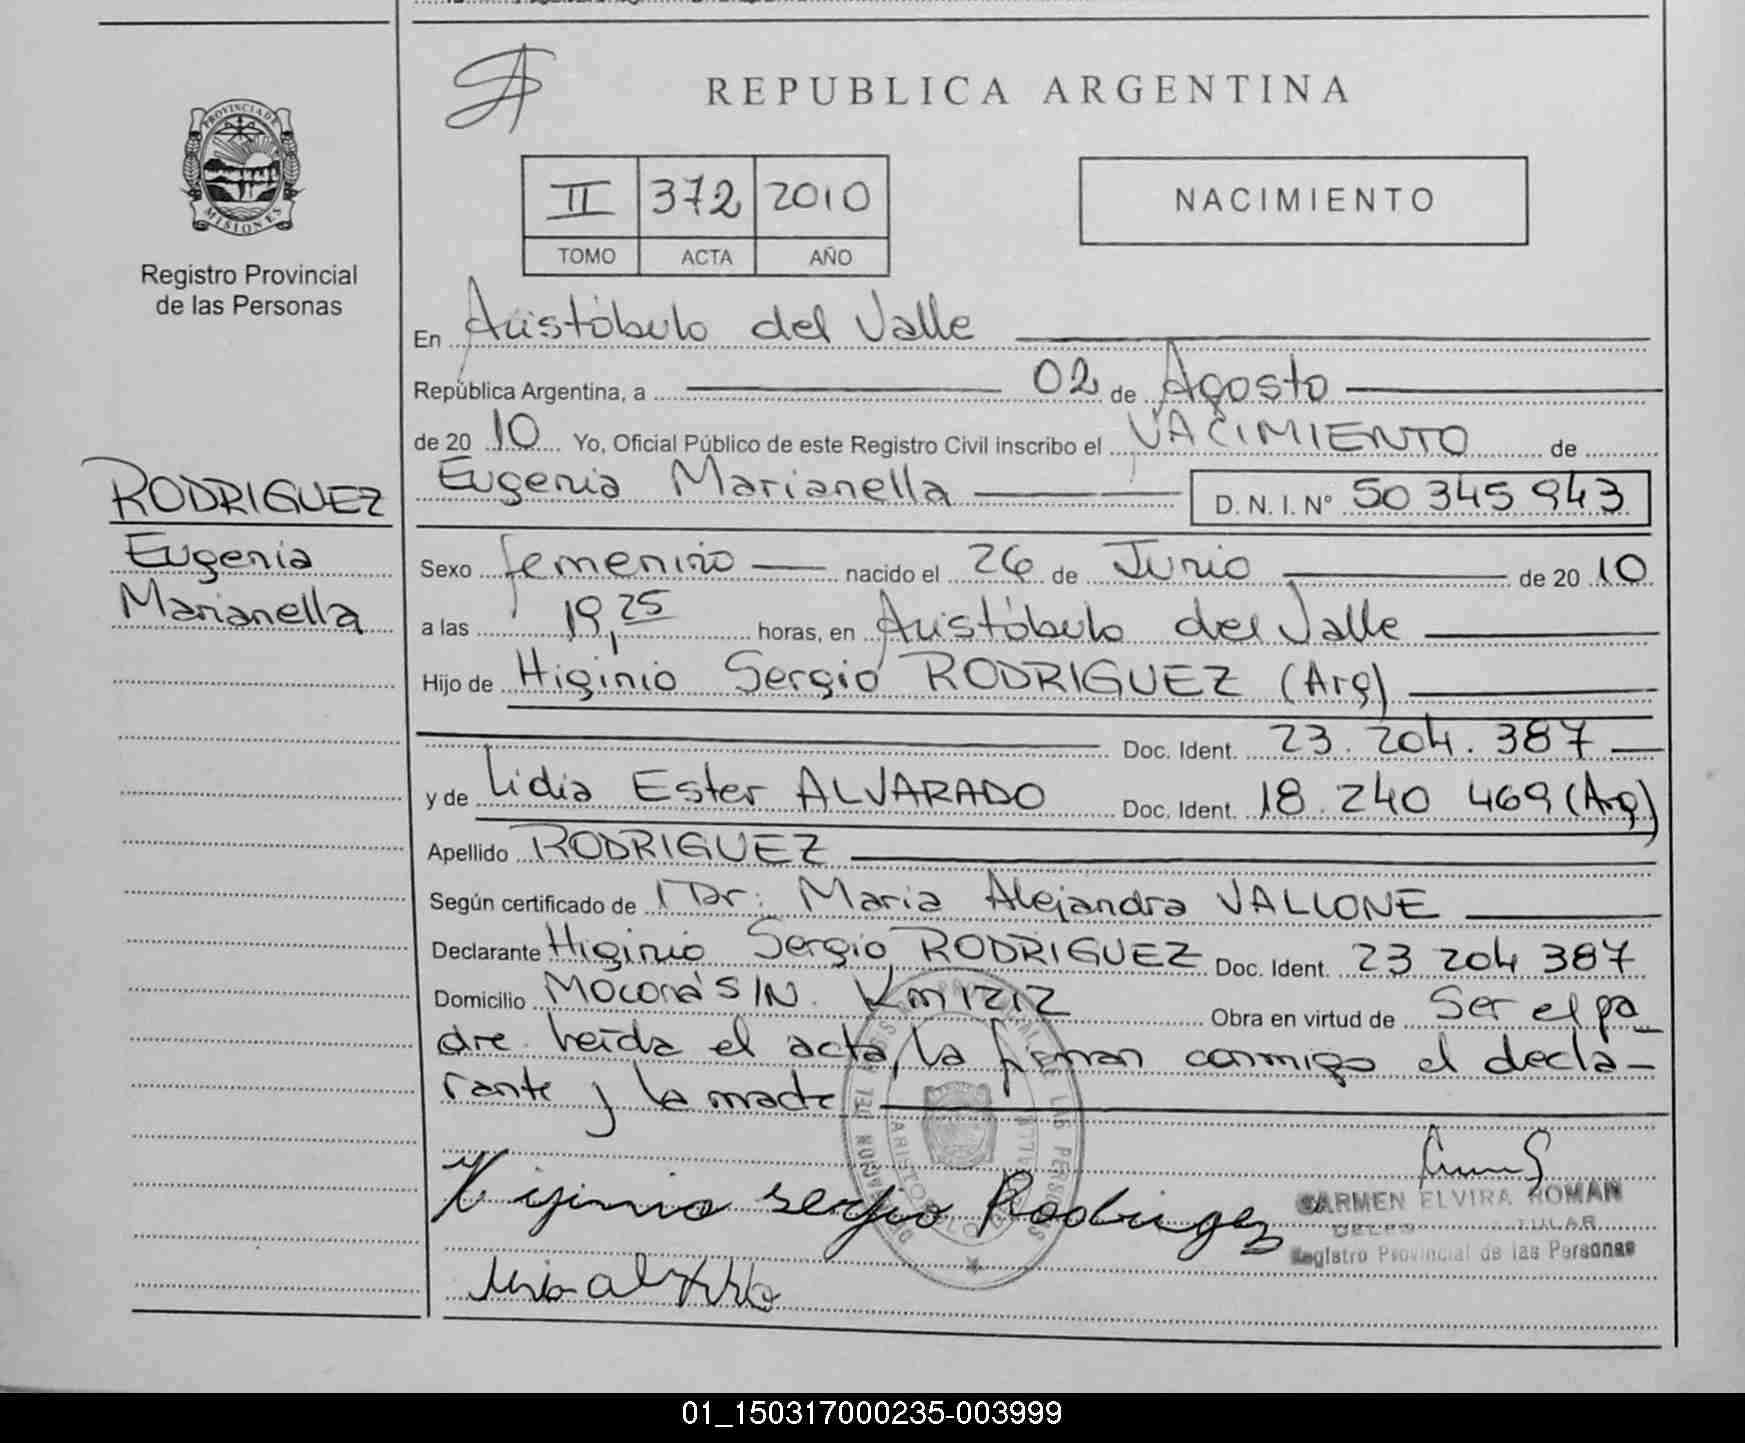 REPUBLICA ARGENTINA
PROVINCIA DE
MISIONES
Registro Provincial
de las Personas
II 372 2010
TOMO ACTA AÑO
NACIMIENTO
En Aristóbulo del Valle
República Argentina, a 02 de Agosto
de 20 10 Yo, Oficial Público de este Registro Civil inscribo el NACIMIENTO de
RODRIGUEZ
Eugenia
Marianella
Eugenia Marianella D. N. I. Nº 50 345 943
Sexo femenino nacido el 26 de Junio de 20 10
a las 19,25 horas, en Aristóbulo del Valle
Hijo de Higinio Sergio RODRIGUEZ (Arg)
Doc. Ident. 23.204.387
y de Lidia Ester ALVARADO Doc. Ident. 18.240 469 (Arg)
Apellido RODRIGUEZ
Según certificado de Dr: Maria Alejandra VALLONE
Declarante Higinio Sergio RODRIGUEZ Doc. Ident. 23 204 387
Domicilio Mocona S/N. Km 1212 Obra en virtud de Ser el pa
dre leída el acta, la firman conmigo el decla-
rante y la madre
Higinio sergio Rodriguez
CARMEN ELVIRA ROMAN
Registro Provincial de las Personas
01_150317000235-003999